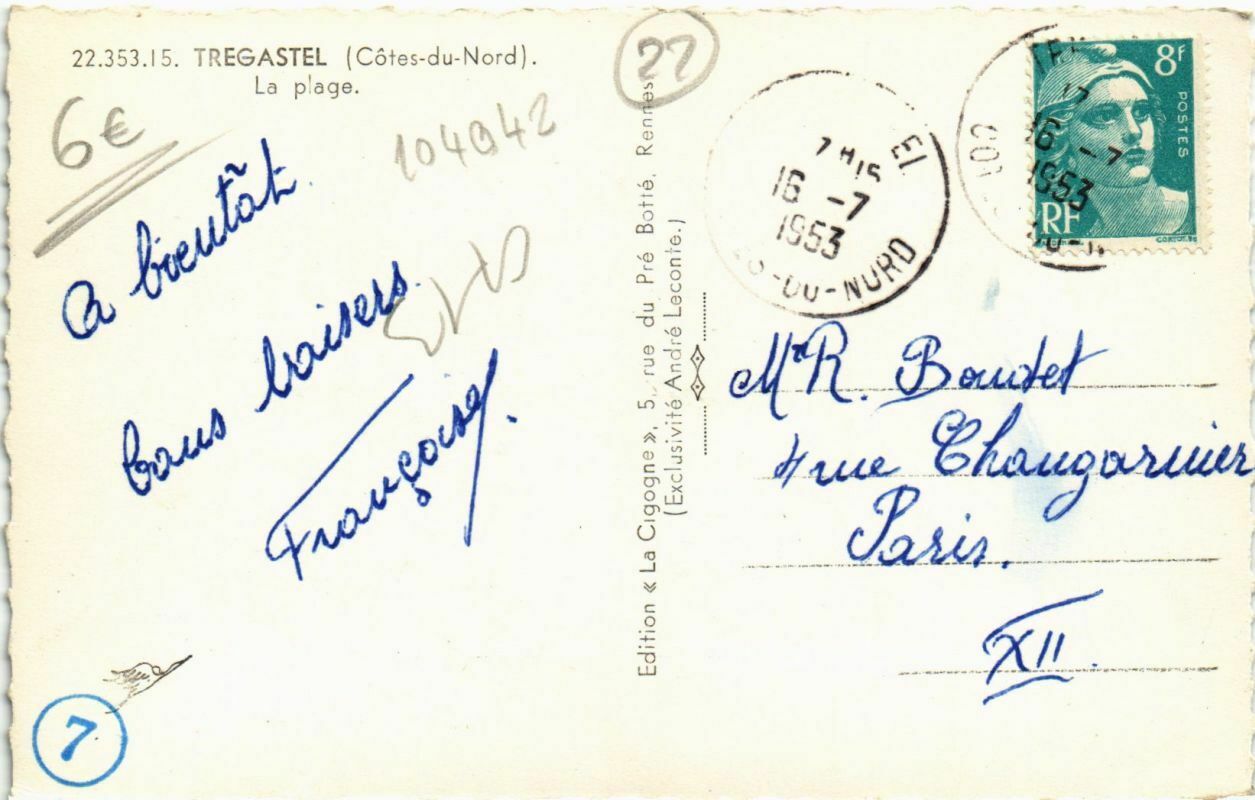 22.353.15. TREGASTEL (Côtes-du-Nord).
La plage.
6€
104942
22
A bientôt.
bons baisers.
Françoise.
7
Edition « La Cigogne », 5, rue du Pré Botté, Rennes
(Exclusivité André Leconte.)
7H15
16 -7
1953
-DU-NORD
17
16 -7
1953
8f
POSTES
RF
Mr R. Boudet
4 rue Changarnier
Paris.
XII.